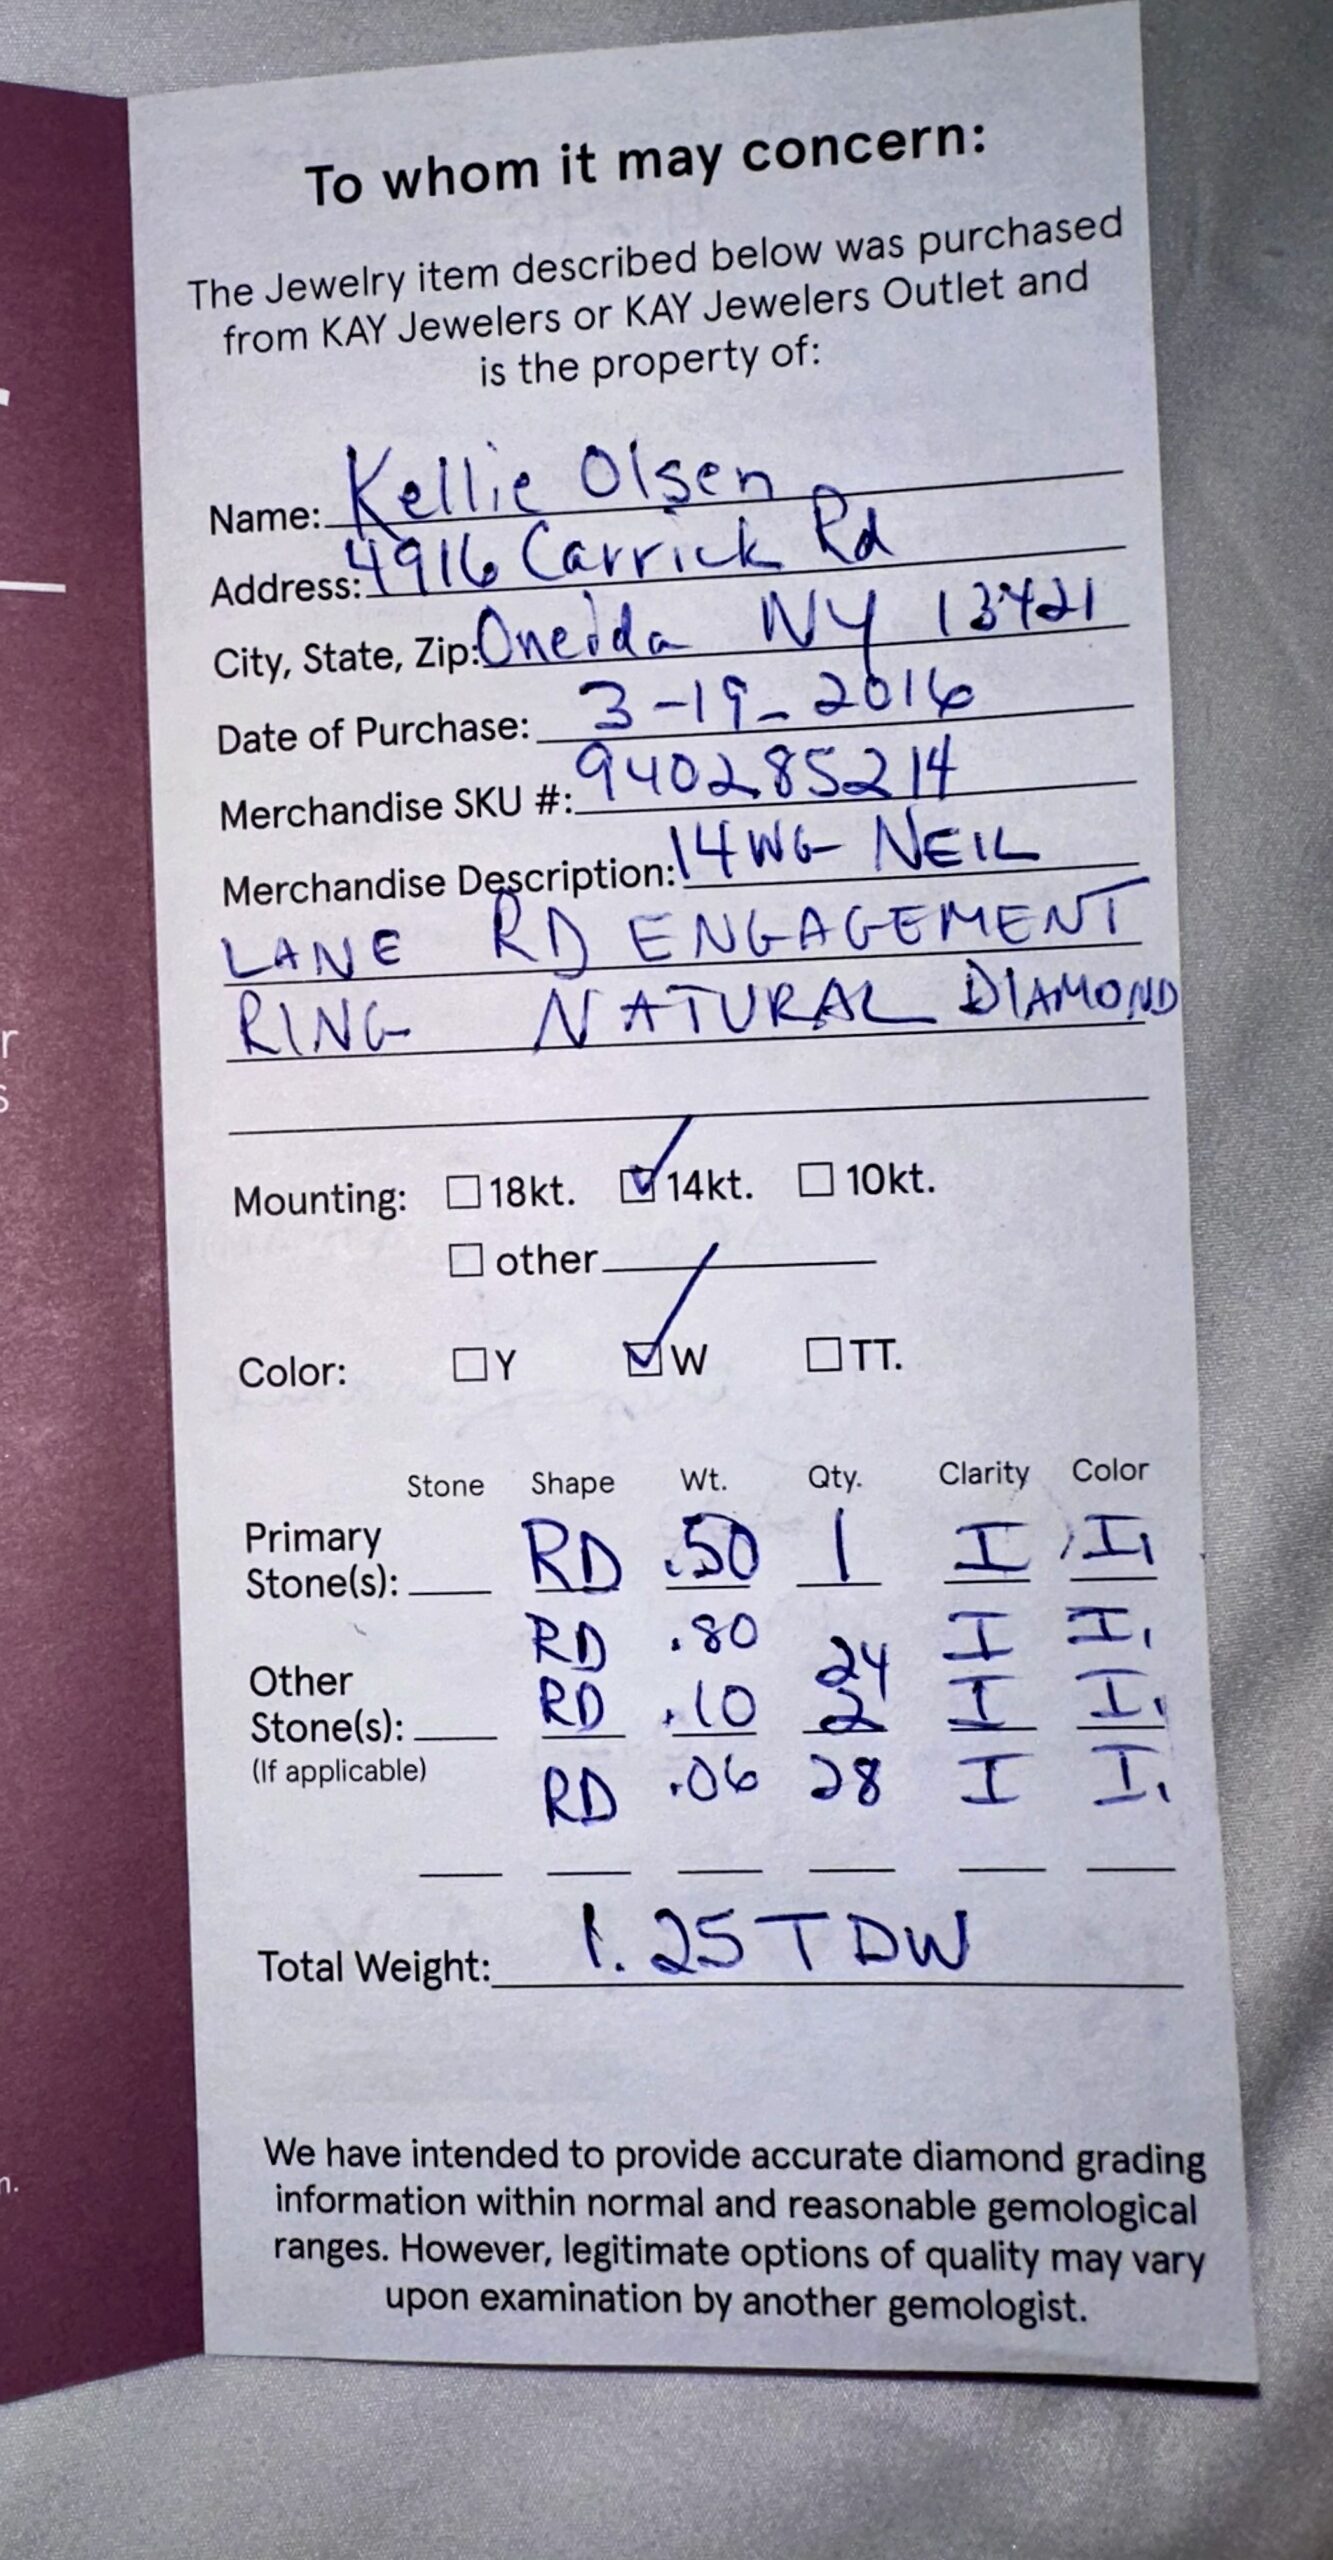 To whom it may concern:
The Jewelry item described below was purchased
from KAY Jewelers or KAY Jewelers Outlet and
is the property of:
Name: Kellie Olsen
Address: 4916 Carrick Rd
City, State, Zip: Oneida NY 13421
Date of Purchase: 3-19-2016
Merchandise SKU #: 940285214
Merchandise Description: 14WG NEIL
LANE RD ENGAGEMENT
RING NATURAL DIAMOND
Mounting: 18kt. 14kt. 10kt.
other
Color: Y W TT.
Stone Shape Wt. Qty. Clarity Color
Primary
Stone(s): RD .50 1 I I1
RD .80 24 I I1
Other
Stone(s): RD .10 2 I I1
(If applicable)
RD .06 28 I I1
Total Weight: 1.25 TDW
We have intended to provide accurate diamond grading
information within normal and reasonable gemological
ranges. However, legitimate options of quality may vary
upon examination by another gemologist.
r
s
n.